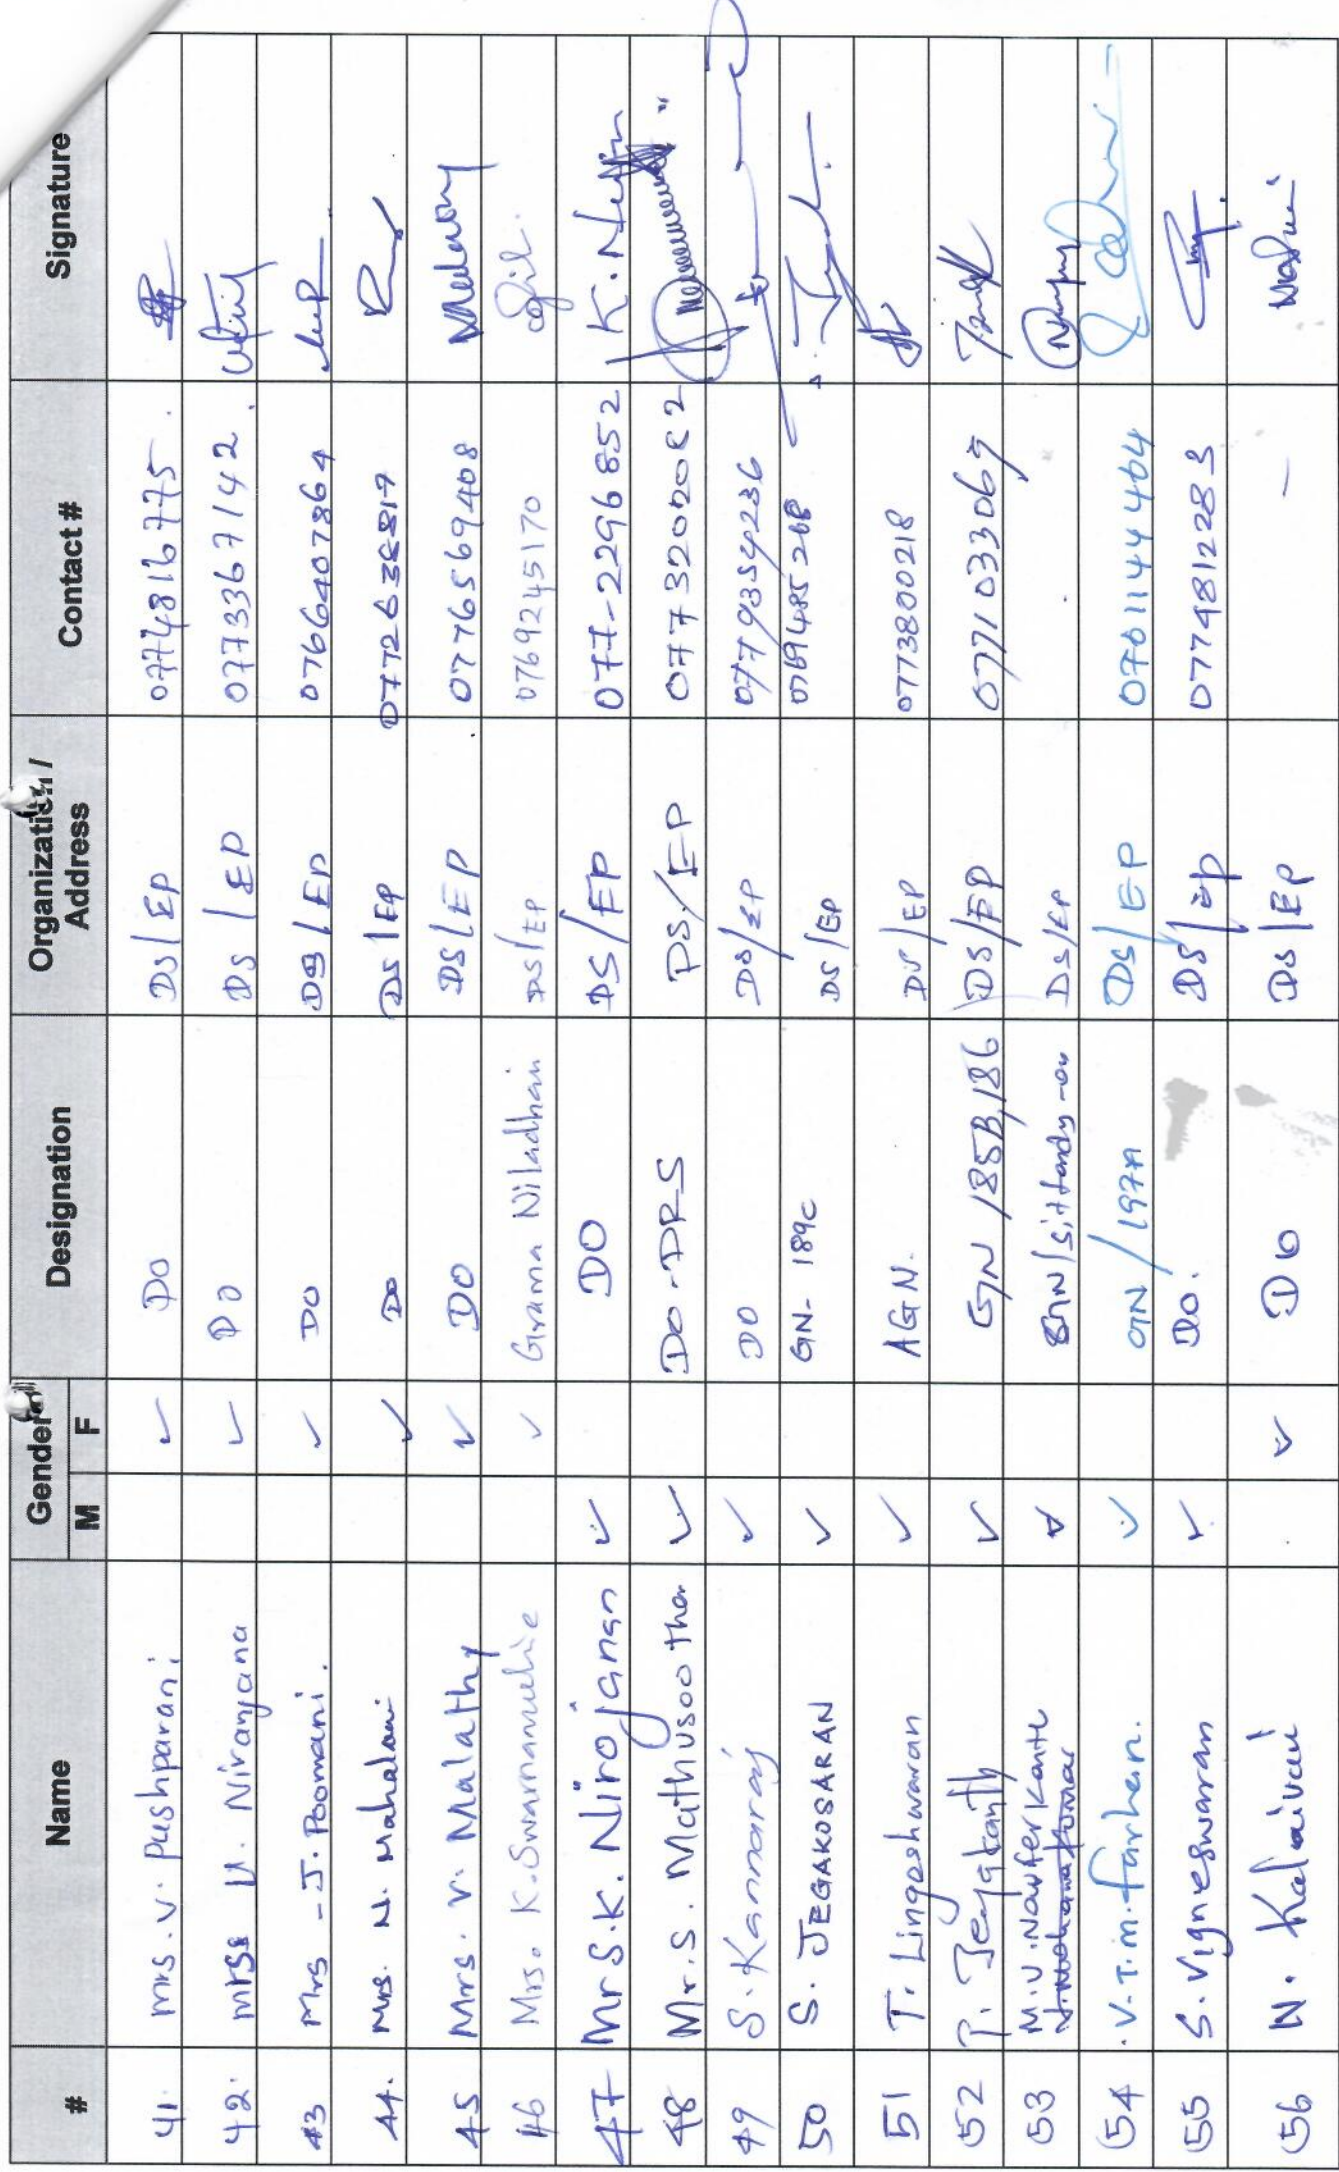 # Name Gender Designation Organization / Address Contact # Signature
M F
41. Mrs. V. Pushparani ✓ DO DS/EP 0774816775.
42. Mrs V. Niranjana ✓ DO DS/EP 0773367142.
43 Mrs - J. Poomani. ✓ DO DS/EP 0766407864
44. Mrs. N. Mahalani ✓ DO DS/EP
45 Mrs. V. Malathy ✓ DO DS/EP 0776569408
46 Mrs. K. Swarnamulie ✓ Grama Niladhari DS/EP 0769245170
47 Mr S.K. Nirojanan ✓ DO DS/EP 077-2296852 K. Niro
48 Mr. S. Mathusoothan ✓ DO-DRS DS/EP
49 S. Kannaraj ✓ DO DS/EP 0779354236
50 S. JEGAKOSARAN ✓ GN- 189C DS/EP
51 T. Lingeshwaran ✓ AGN. DS/EP 0773800218
52 P. Jeyakanth ✓ GN 185B,186 DS/EP 0771033067
53 M.U. Nowferkante ✓ GN/Sittandy DS/EP
54 V.T.M. farhein. ✓ GN/197A DS/EP 0701144404
55 S. Vigneswaran ✓ DO. DS/EP 0774812283
56 N. Kalaivani ✓ DO DS/EP -